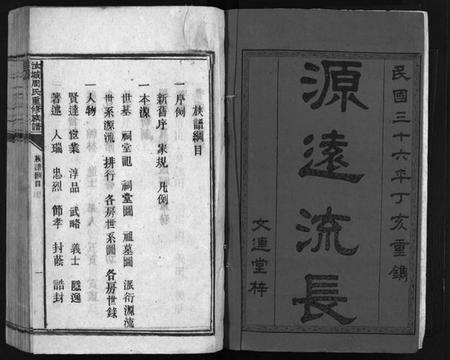 民國三十六年丁亥重鐫
源遠流長
文連堂梓
族譜綱目
一序例
新舊序 家規 凡例
一本源
世基 祠堂記 祠堂圖 祖墓圖 派衍源流
世系源流 排行 各房世系圖 各房世錄
一人物
賢達 宦業 淳品 武略 義士 隱逸
著述 人瑞 忠烈 節孝 封蔭 誥封
汝城周氏重修族譜
族譜綱目